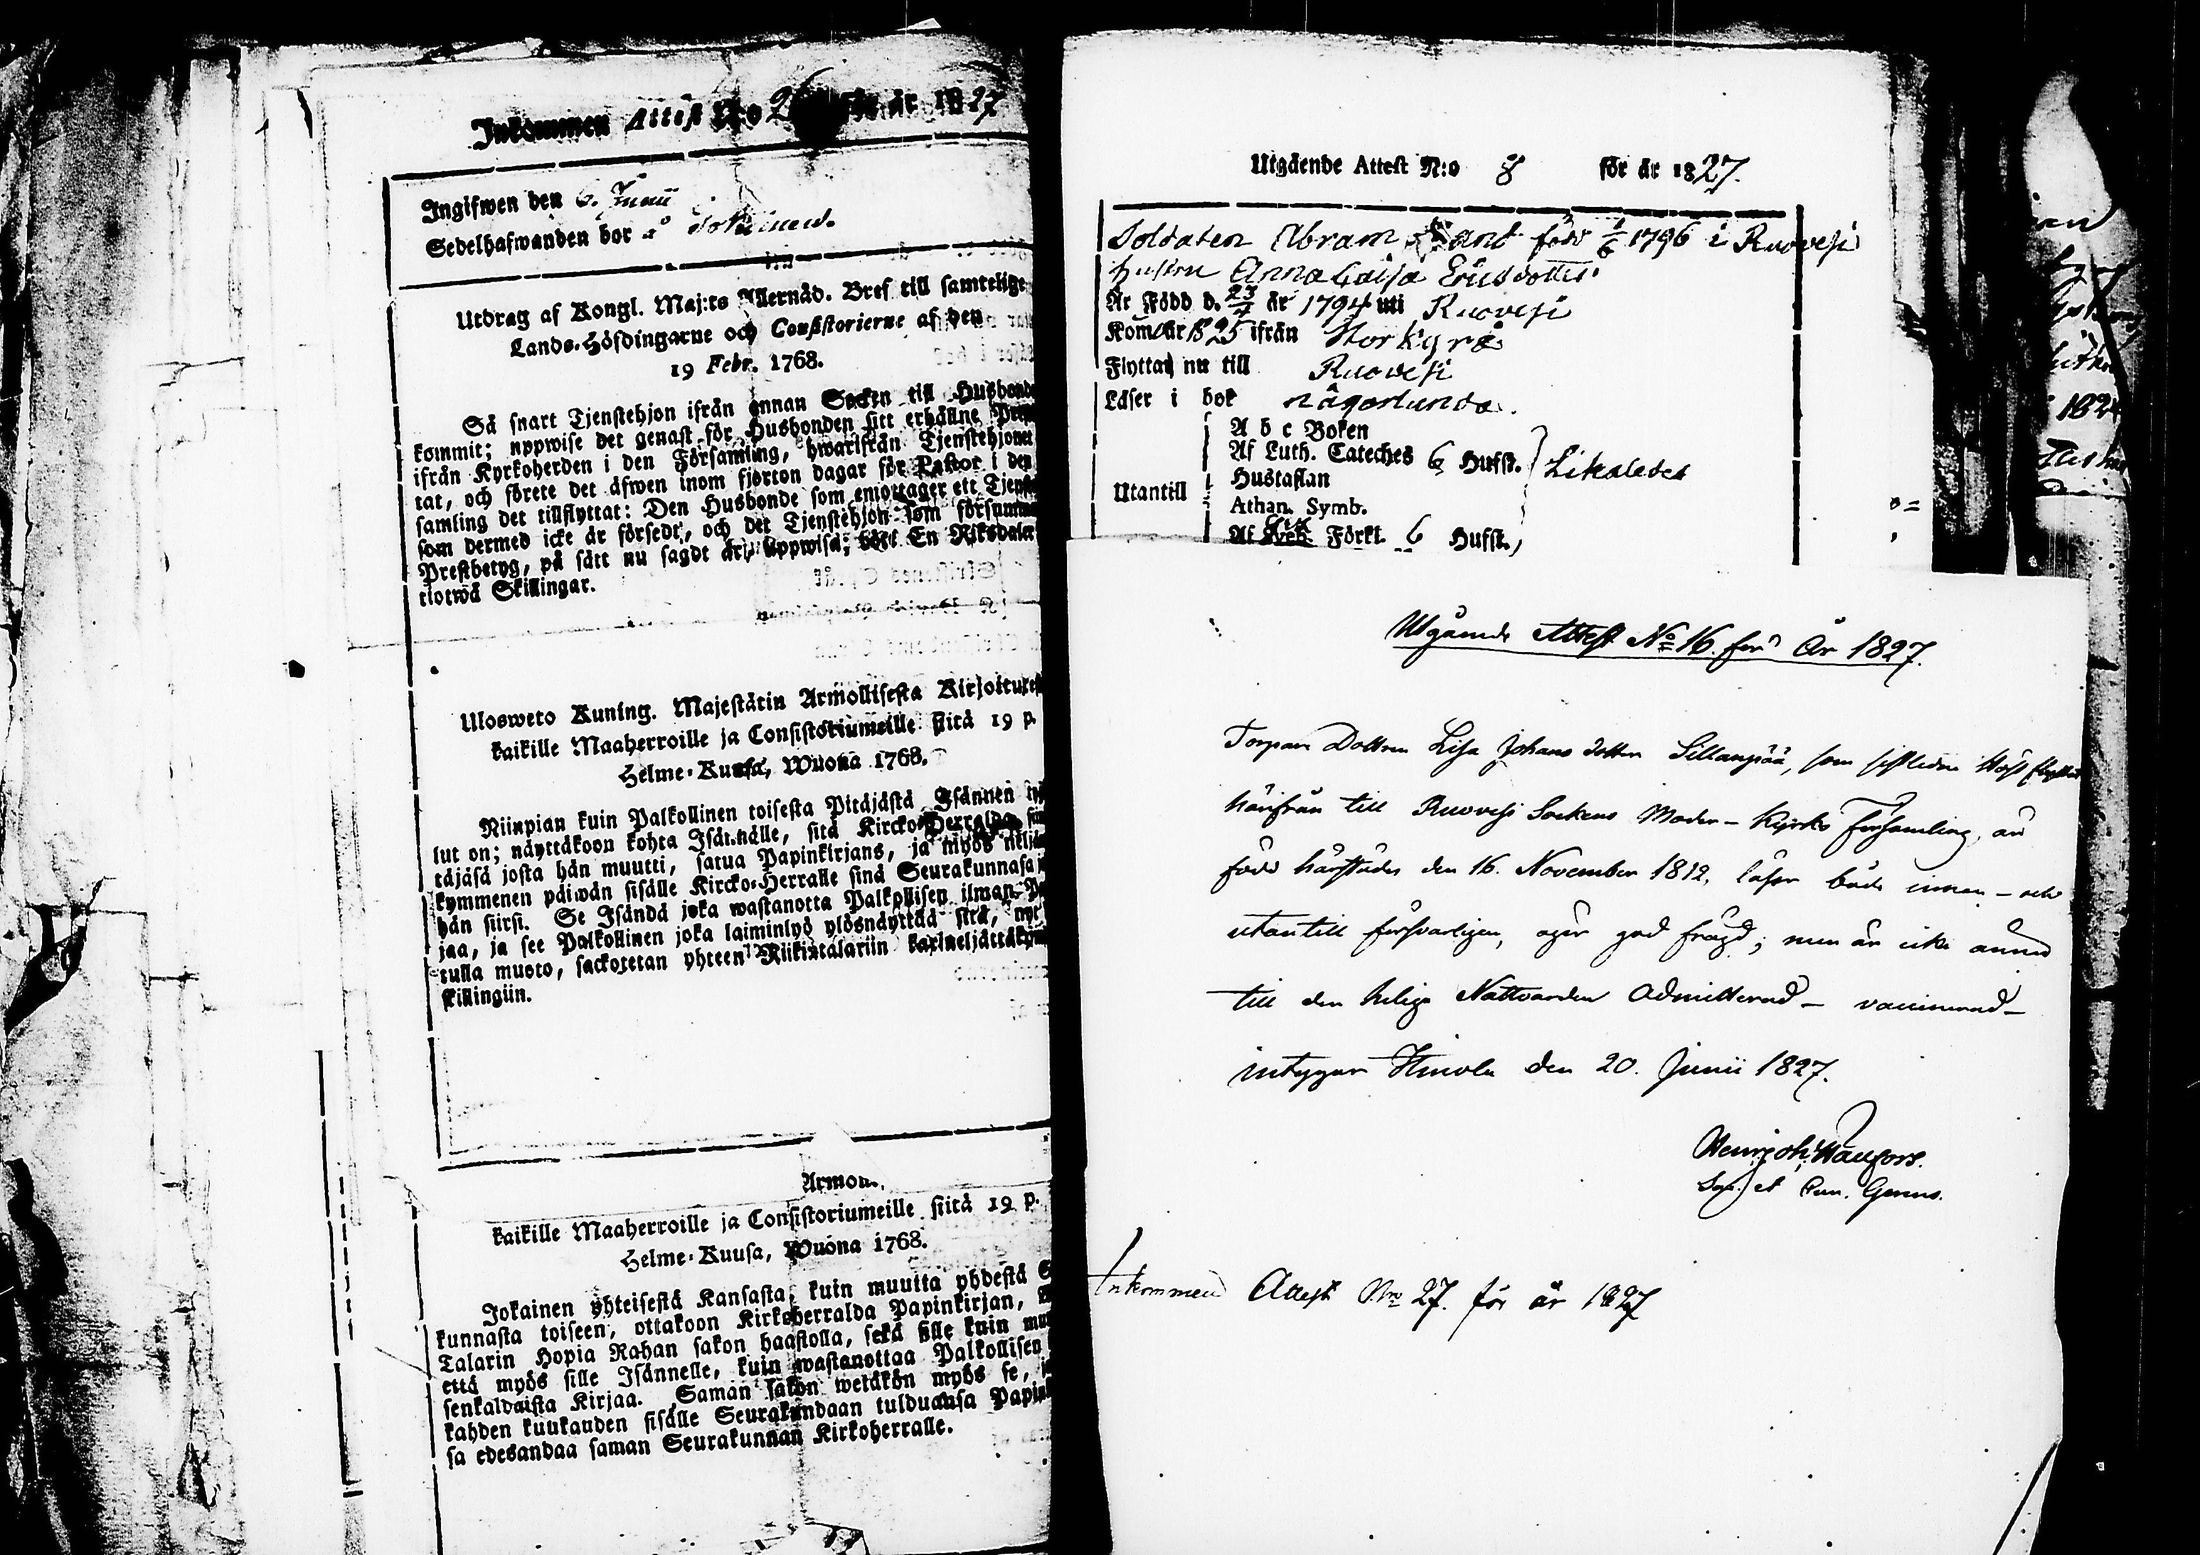 Inkommen Attest No 26 för år 1827
Ingifwen den 6. Junii
Sedelhafwanden bor
Utdrag af Kongl. Maj:ts Allernåd. Bref till samtelige
Lands-Höfdingarne och Consistorierne af den
19 Febr. 1768.
Så snart Tjenstehjon ifrån annan Socken till Husbonde
kommit; uppwise det genast för Husbonden sitt erhållne
ifrån Kyrkoherden i den Församling, hwarifrån Tjenstehjonet
tat, och förete det äfwen inom fjorton dagar för Pastor i den
samling det tillflyttat: Den Husbonde som emottager ett
som dermed icke är försedt, och det Tjenstehjon som
Prestbetyg, på sätt nu sagdt är, uppwisa; böte En Riksdaler
tiotwå Skillingar.
Ulosweto Kuning. Majestätin Armollisesta
kaikille Maaherroille ja Consistoriumeille siitä 19 p.
Helme-Kuusa, Wuona 1768.
Niinpian kuin Palkollinen toisesta Pitäjästä Isännen
lut on; näyttäkoon kohta Isännälle, sitä
täjäsä josta hän muutti, saatua Papinkirjans, ja myös
kymmenen päiwän sisälle Kircko-Herralle sinä Seurakunnasa
hän siirsi. Se Isändä joka wastanotta Palkollisen ilman
jaa, ja see Palkollinen joka laiminlyö ylösnäyttää sitä, nyt
tulla muoto, sackotetan yhteen Riikintalariin
skillingiin.
kaikille Maaherroille ja Consistoriumeille siitä 19 p.
Helme-Kuusa, Wuona 1768.
Jokainen yhteisestä Kansasta, kuin muutta yhdestä
kunnasta toiseen, ottakoon Kirkoherralda Papinkirjan,
Talarin Hopia Rahan sakon haastolla, sekä sille kuin
että myös sille Isännelle, kuin wastanottaa Palkollisen
senkaldaista Kirjaa. Saman sakon wetäkön myös se,
kahden kuukauden sisälle Seurakundaan tulduansa
sa edesandaa saman Seurakunnan Kirkoherralle.
Utgående Attest N:o 8 för år 1827.
Soldaten Abram född 1/6 1796 i Ruovesi
hustru Anna Caisa Ericsdotter
Är Född d. 23/4 år 1794 uti Ruovesi
Kom år 1825 ifrån Storkyro
Flyttat nu till Ruovesi
Läser i bok någorlunda.
A b c Boken
Af Luth. Cateches 6 Hufst. Likaledes
Hustaflan
Utantill
Athan. Symb.
Af Sveb. Förkl. 6 Hufst.
Utgående Attest No 16. för År 1827.
Torpare Dottren Lisa Johans dotter Sillanpää, som sistledne Höst flyttat
härifrån till Ruovesi Sockens Moder-Kyrko Församling, är
född härstädes den 16. November 1812, läser både innan- och
utantill försvarligen, äger god frägd; men är icke ännu
till den heliga Nattvarden Admitterad - vaccinerad -
intygar den 20. Junii 1827.
Inkommen Attest No 27. för år 1827